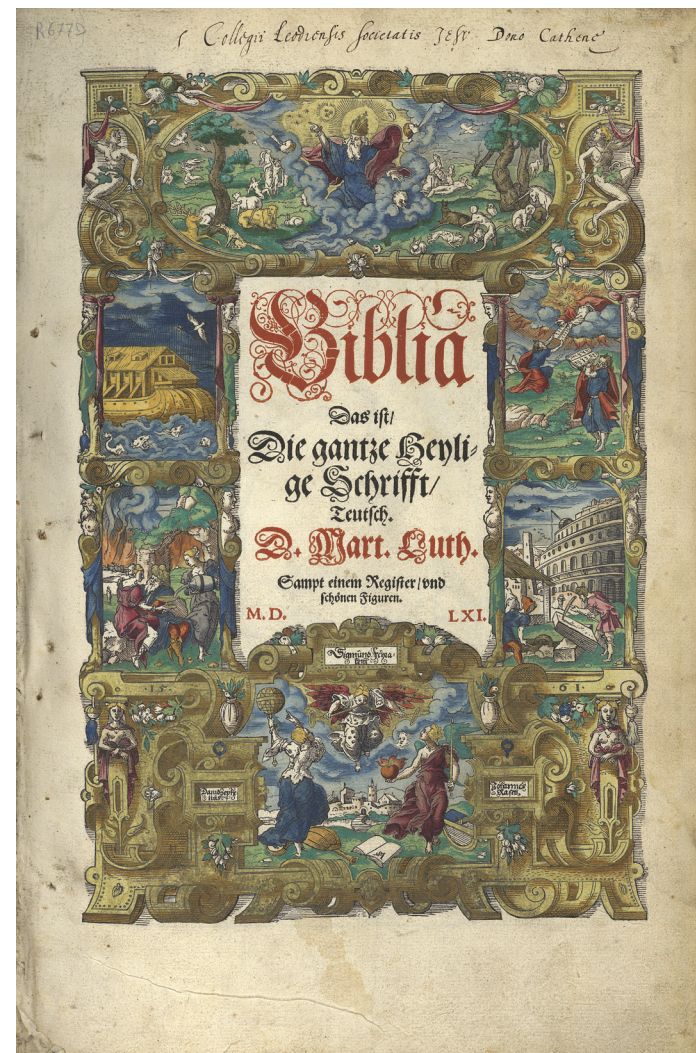 R677D
Collegii Leodiensis Societatis Jesu Dono Cathene
Biblia
Das ist/
Die gantze Heyli-
ge Schrifft/
Teutsch.
D. Mart. Luth.
Sampt einem Register/vnd
schönen Figuren.
M. D. LXI.
Sigmund
15 61
Johannes
Rasch.